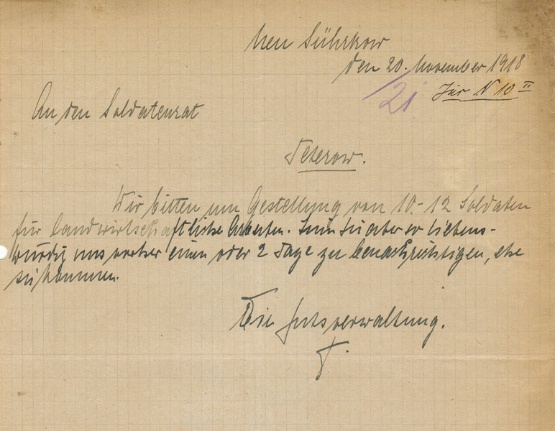 Neu Sührkow
den 20. November 1918
21 Für N 10 II
An den Soldatenrat
Teterow.
Wir bitten um Gestellung von 10-12 Soldaten
für landwirtschaftliche Arbeiten. Sein Sie aber so liebens-
würdig uns vorher einen oder 2 Tage zu benachrichtigen, ehe
sie kommen.
Die Gutsverwaltung.